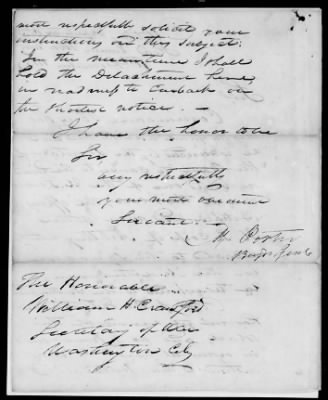 most respectfully solicit your
instructions on this subject.
In the meantime I shall
hold the Detachment here
in readiness to embark on
the shortest notice. —
I have the honor to be
Sir
very respectfully
your most obedient
Servant.
M. Porter
The Honorable
William H. Crawford
Secretary of War
Washington City